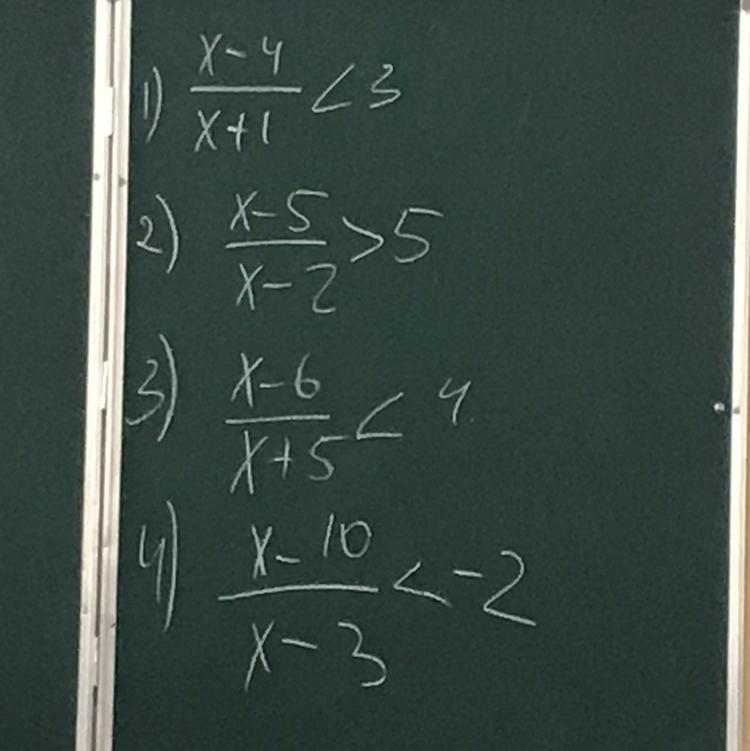 1) \frac{x-4}{x+1} < 3
2) \frac{x-5}{x-2} > 5
3) \frac{x-6}{x+5} < 4
4) \frac{x-10}{x-3} < -2